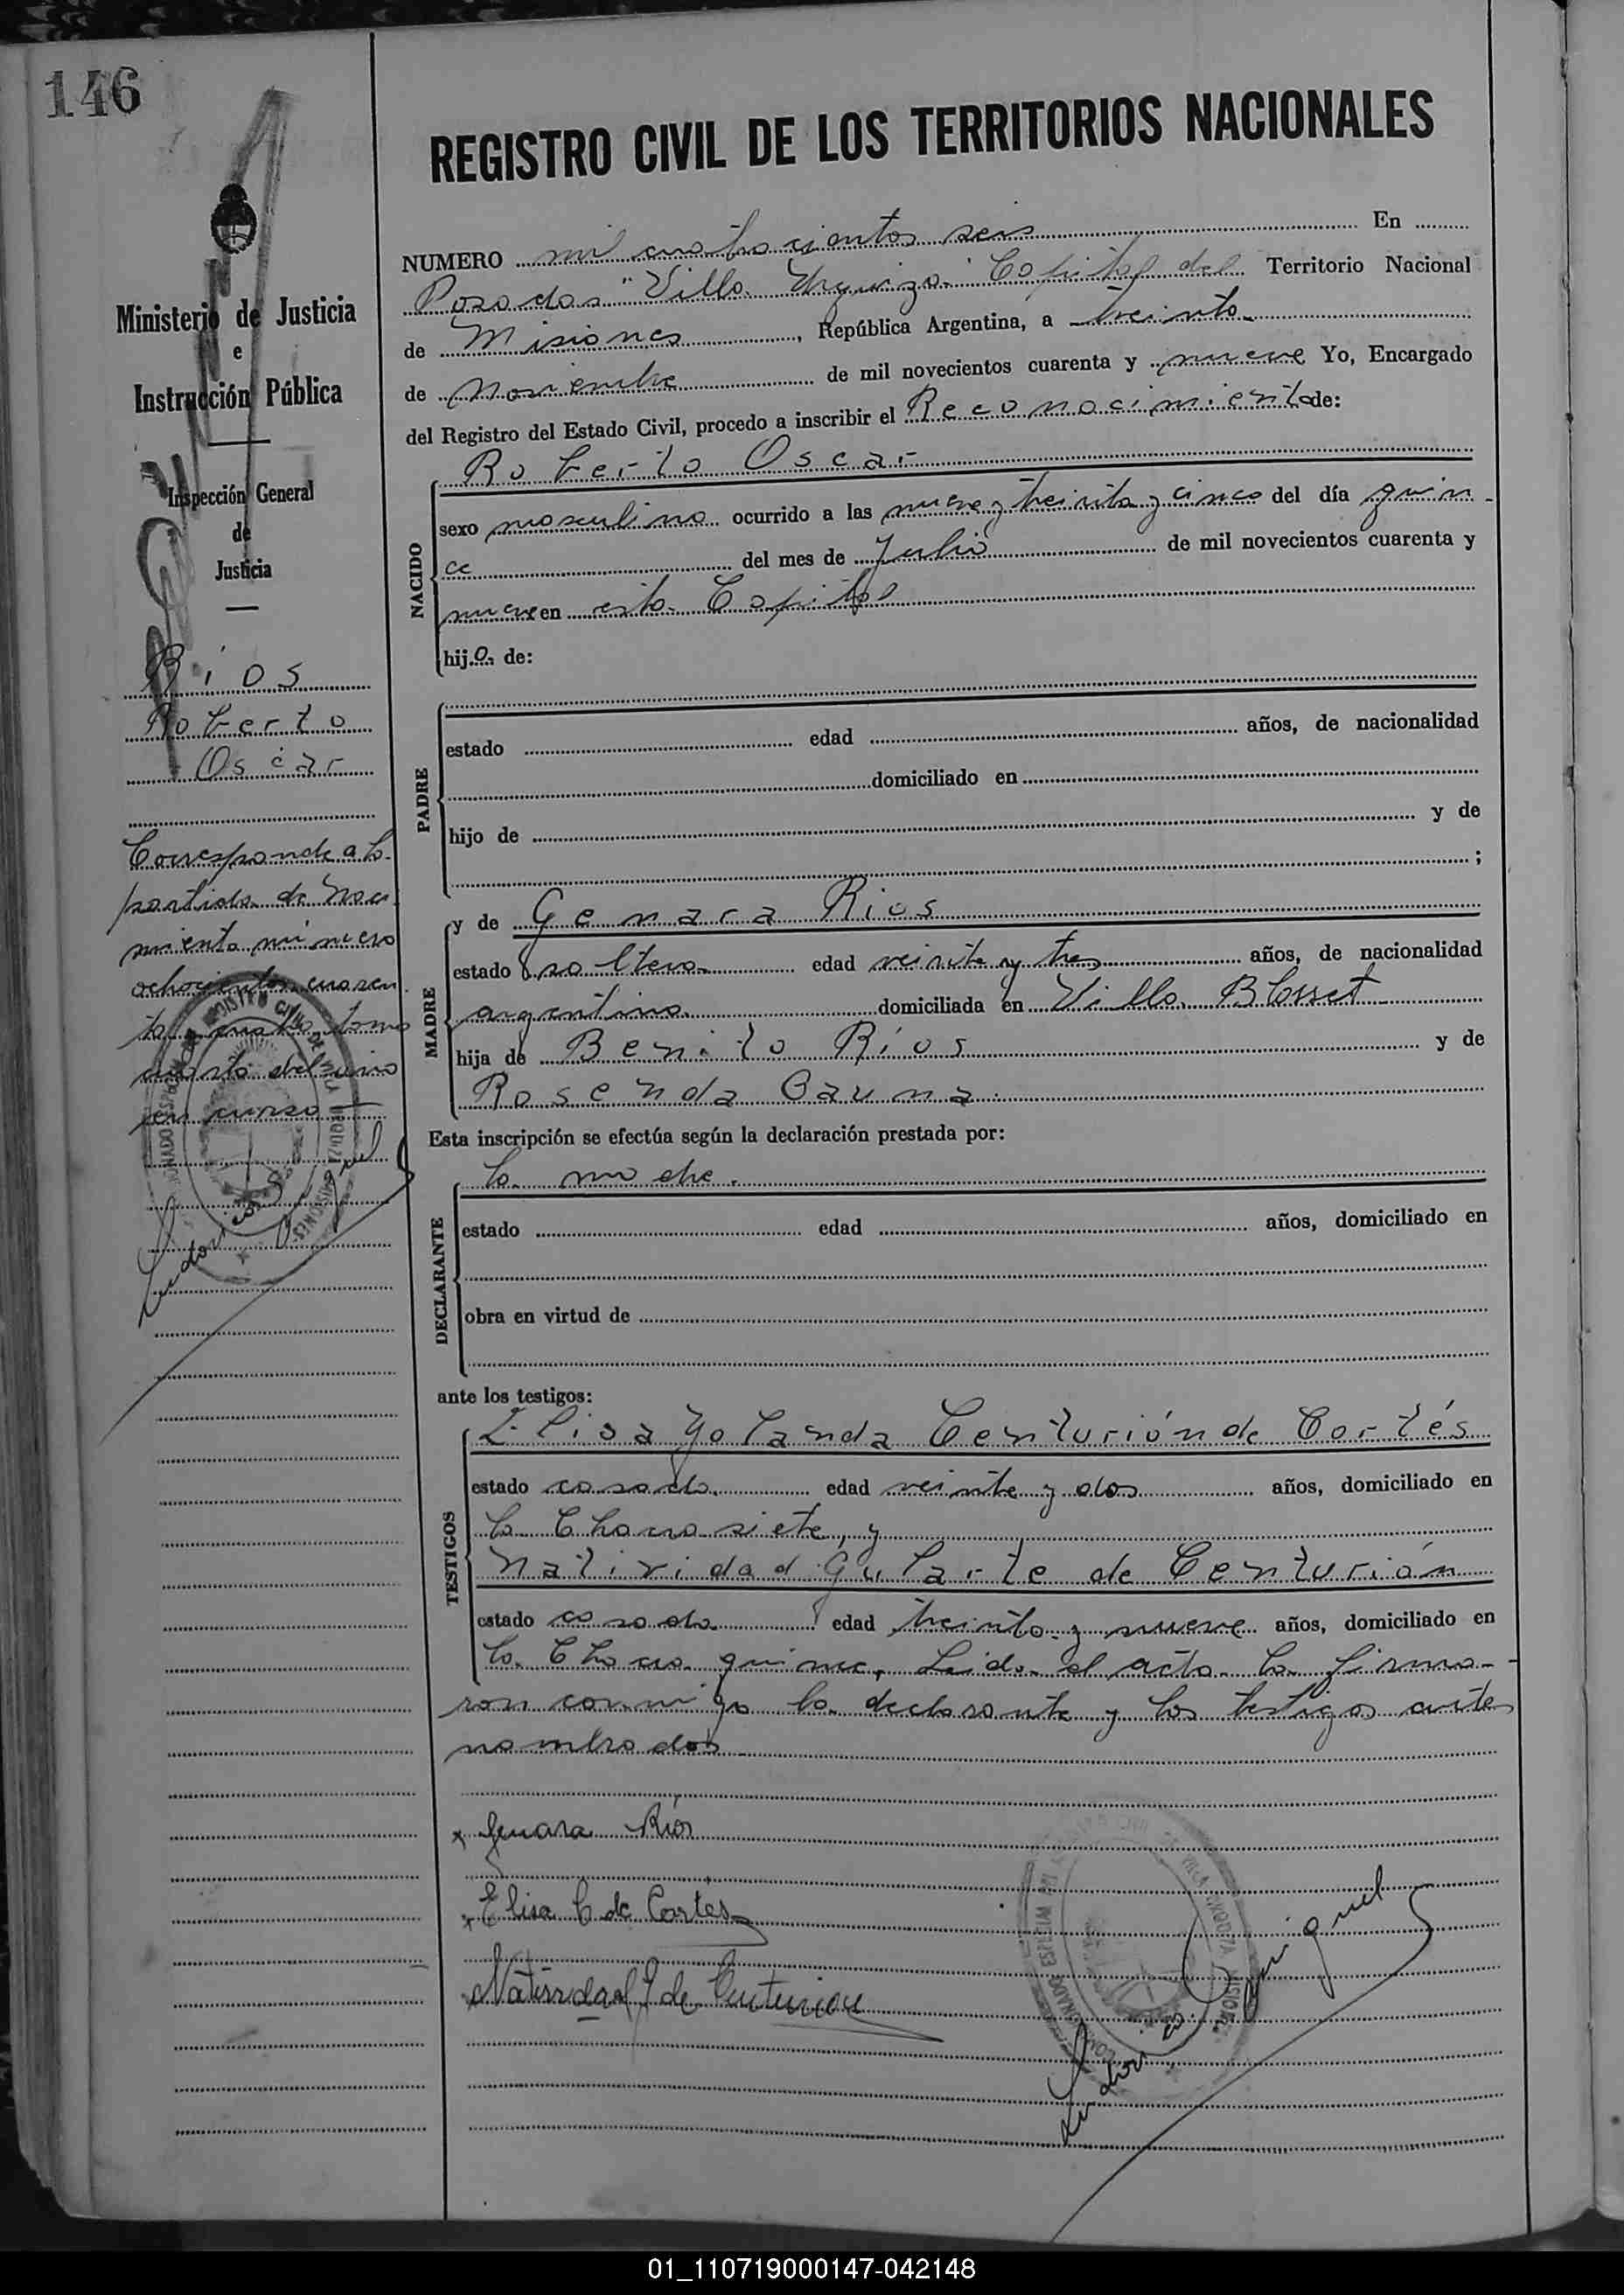 146
REGISTRO CIVIL DE LOS TERRITORIOS NACIONALES
Ministerio de Justicia
e
Instrucción Pública
Inspección General
de
Justicia
Ríos
Roberto
Oscar
Corresponde a la
partida de Naci
miento número
ochocientos cuaren
ta y cuatro tomo
cuarto del año
en curso
NUMERO mil cuatrocientos seis En
Posadas "Villa Urquiza" Capital del Territorio Nacional
de Misiones, República Argentina, a treinta
de Noviembre de mil novecientos cuarenta y nueve Yo, Encargado
del Registro del Estado Civil, procedo a inscribir el Reconocimiento de:
NACIDO
Roberto Oscar
sexo masculino ocurrido a las nueve y treinta y cinco del día quin-
ce del mes de Julio de mil novecientos cuarenta y
nueve en esta Capital
hijo de:
PADRE
estado edad años, de nacionalidad
domiciliado en
hijo de y de
;
MADRE
y de Genara Rios
estado soltera edad veinte y tres años, de nacionalidad
argentina domiciliada en Villa Blosset
hija de Benito Ríos y de
Rosenda Gauna.
Esta inscripción se efectúa según la declaración prestada por:
DECLARANTE
la madre.
estado edad años, domiciliado en
obra en virtud de
ante los testigos:
TESTIGOS
Elisa Yolanda Centurión de Cortés
estado casada edad veinte y dos años, domiciliado en
la Chacra siete, y
Natividad Gularte de Centurión
estado casada edad treinta y nueve años, domiciliado en
la Chacra quince, Leida el acta la firma-
ron conmigo la declarante y los testigos antes
nombrados
x Genara Ríos
x Elisa C. de Cortés
Natividad G de Centurion
01_110719000147-042148